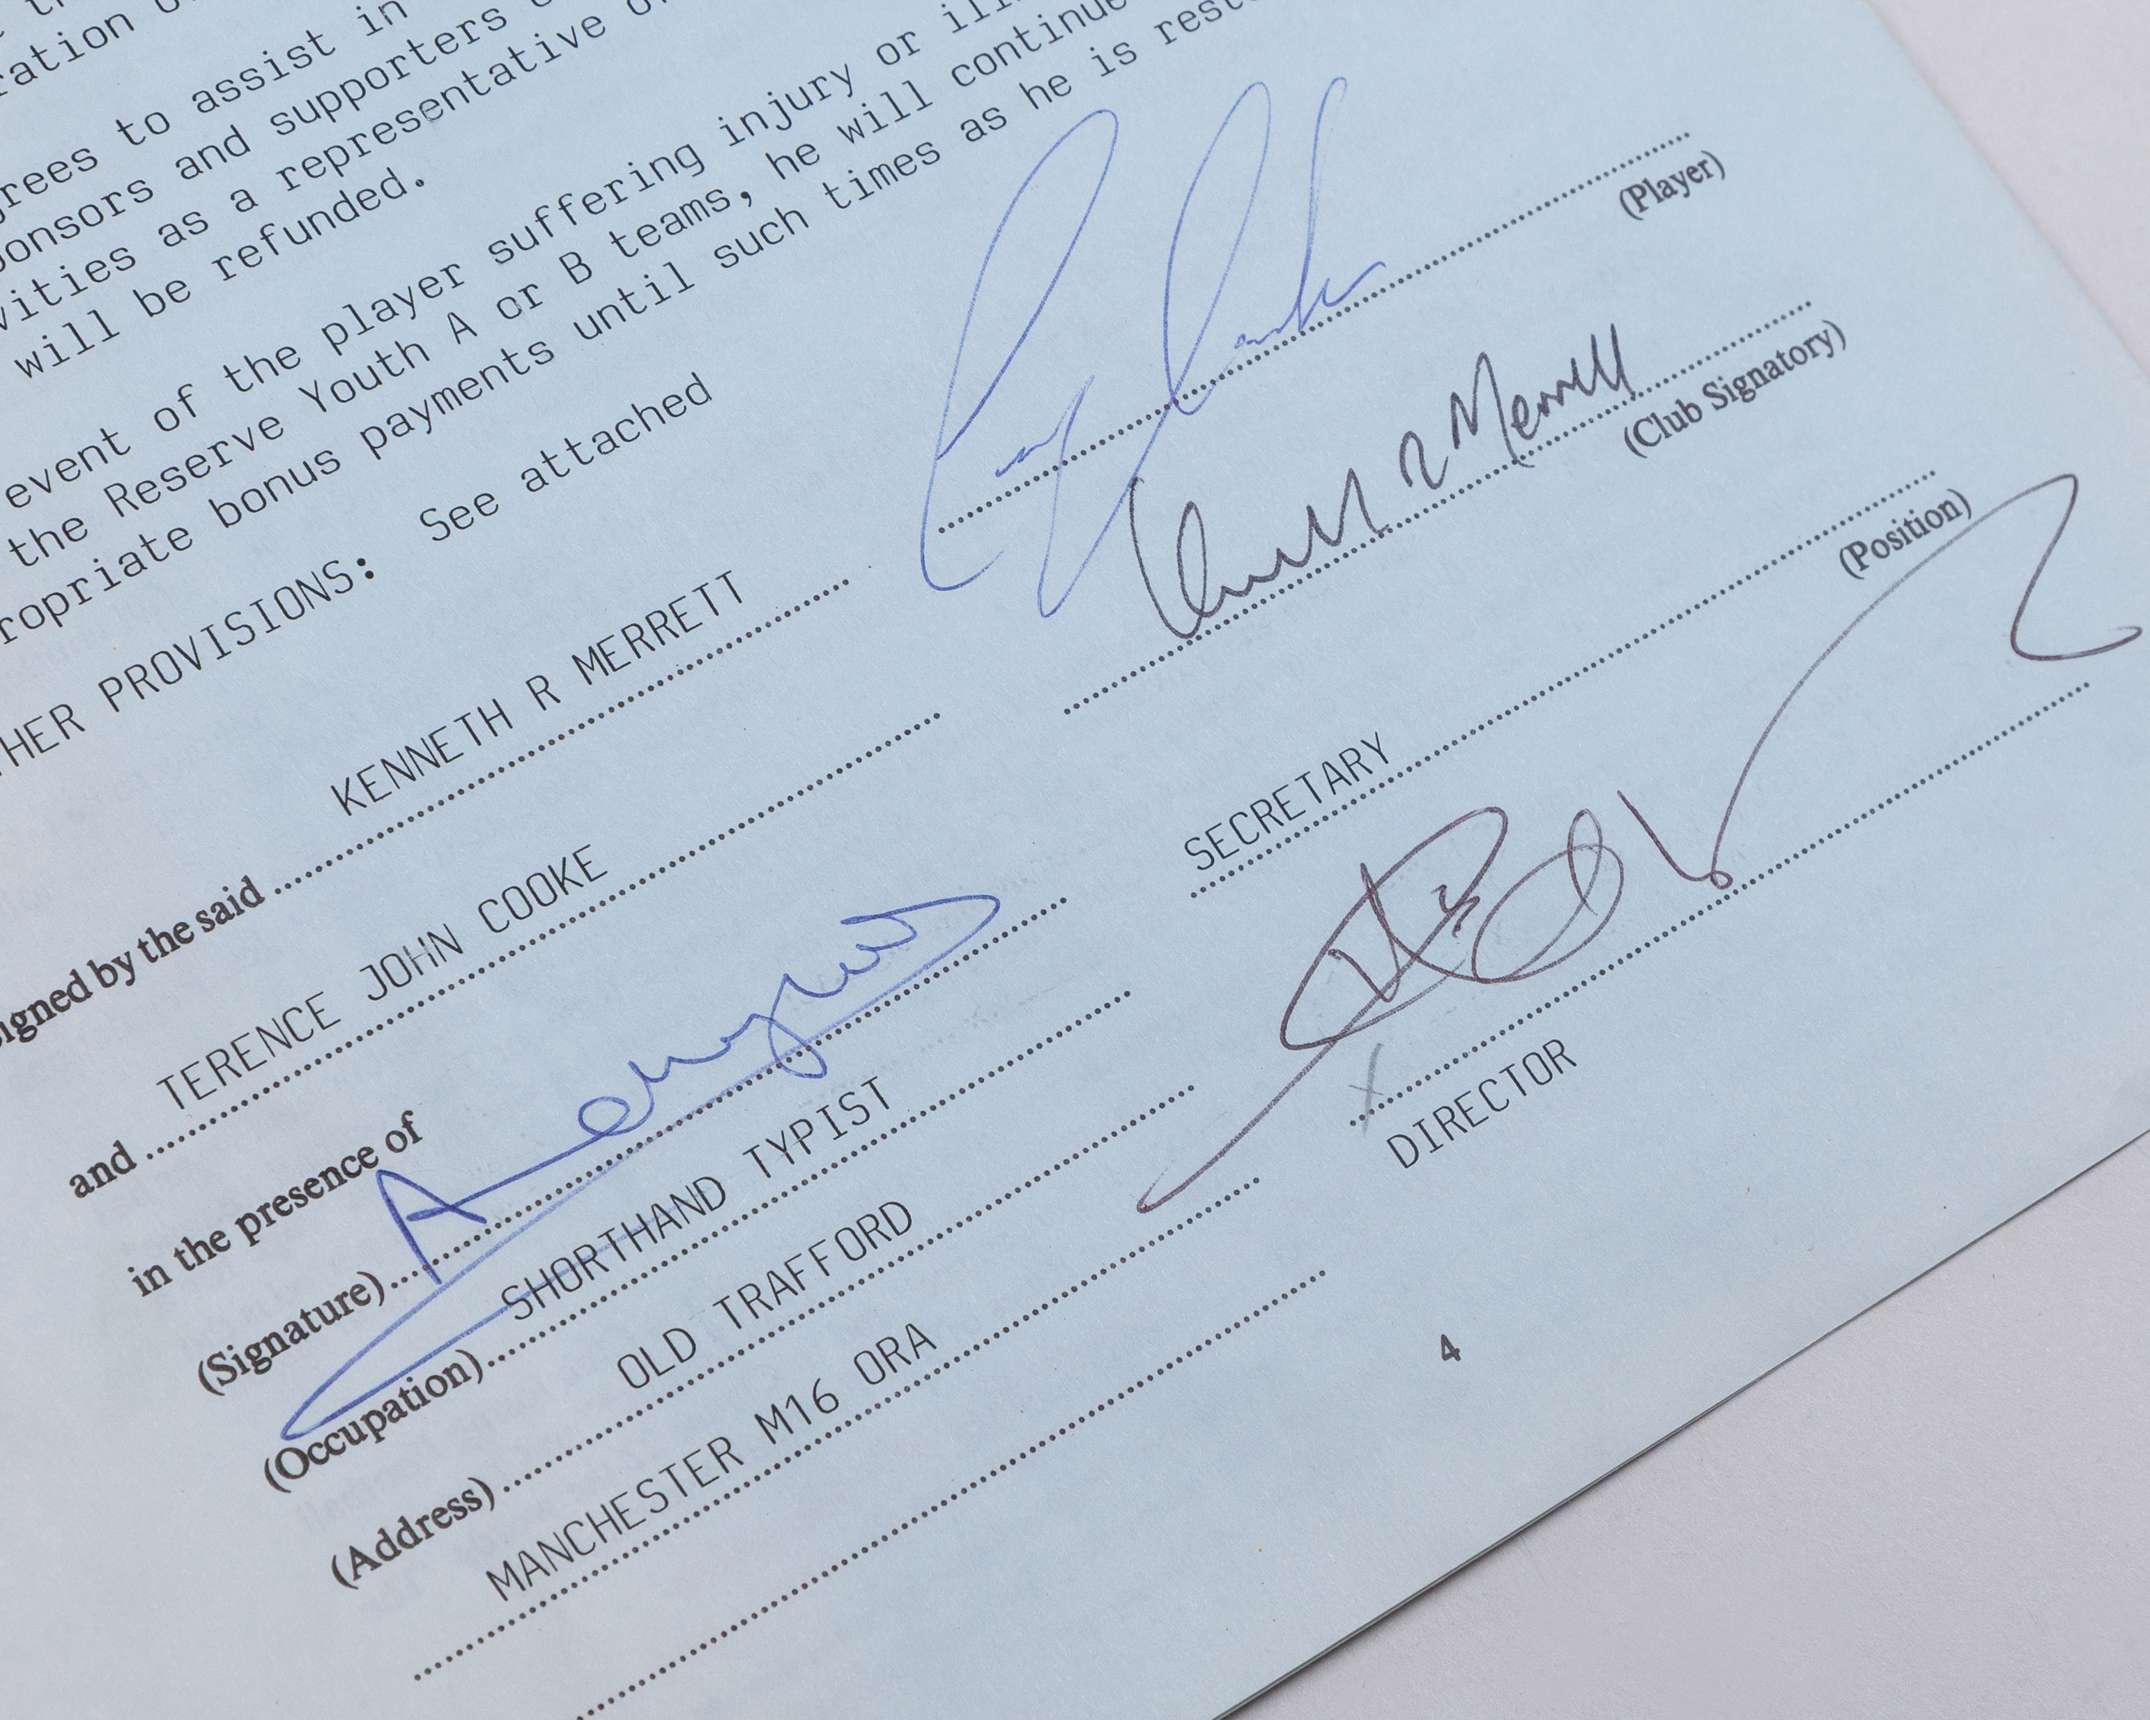 ration
rees to assist in
ponsors and supporters
vities as a representative
will be refunded.
event of the player suffering injury or
the Reserve Youth A or B teams, he will continue
ropriate bonus payments until such times as he is
HER PROVISIONS: See attached
(Player)
igned by the said KENNETH R MERRETT
(Club Signatory)
and TERENCE JOHN COOKE
SECRETARY
(Position)
in the presence of
(Signature)
DIRECTOR
(Occupation) SHORTHAND TYPIST
(Address) OLD TRAFFORD
MANCHESTER M16 ORA
4